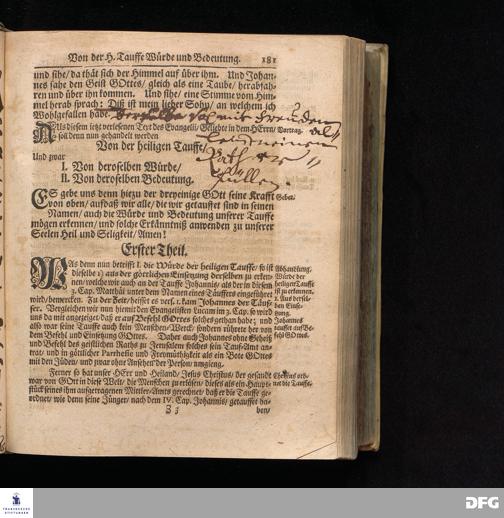 Von der H. Tauffe Würde und Bedeutung. 181
und sihe/ da thät sich der Himmel auf über ihm. Und Johan-
nes sahe den Geist GOttes/ gleich als eine Taube/ herabfah-
ren und über ihn kommen. Und sihe/ eine Stimme vom Him-
mel herab sprach: Diß ist mein lieber Sohn/ an welchem ich
Wohlgefallen habe.
Aus diesem jetzt verlesenen Text des Evangelii/ Geliebte in dem HErrn/ Vortrag.
soll denn nun gehandelt werden
Von der heiligen Tauffe/
Und zwar
I. Von deroselben Würde/
II. Von deroselben Bedeutung.
ES gebe uns denn hiezu der dreyeinige GOtt seine Krafft Gebet.
von oben/ aufdaß wir alle/ die wir getauffet sind in seinen
Namen/ auch die Würde und Bedeutung unserer Tauffe
mögen erkennen/ und solche Erkänntniß anwenden zu unserer
Seelen Heil und Seligkeit/ Amen!
Erster Theil.
WAs denn nun betrifft I. die Würde der heiligen Tauffe/ so ist Abhandlung.
dieselbe 1) aus der göttlichen Einsetzung derselben zu erken- Würde der
nen/ welche wir auch an der Tauffe Johannis/ als der in diesem heiligen Tauffe
3. Cap. Matthäi unter dem Namen eines Täuffers eingeführet ist zu erkennen.
wird/ bemercken. Zu der Zeit/ heisset es vers. 1. kam Johannes der Täuf- 1. Aus dersel-
fer. Vergleichen wir nun hiemit den Evangelisten Lucam im 3. Cap. so wird ben Einse-
uns da mit angezeiget/ daß er auf Befehl GOttes solches gethan habe; und Johannes
also war seine Tauffe auch kein Menschen-Werck/ sondern rührete her von tauffet auf Be-
dem Befehl und Einsetzung GOttes. Daher auch Johannes ohne Geheiß fehl GOttes.
und Befehl des geistlichen Raths zu Jerusalem solches sein Tauf-Amt an-
trat/ und in göttlicher Parrhesie und Freymüthigkeit als ein Bote GOttes
mit den Jüden/ und zwar ohne Ansehen der Person/ umgieng.
Ferner so hat unser HErr und Heiland/ Jesus Christus/ der gesandt Christus ord-
war von GOtt in diese Welt/ die Menschen zu erlösen/ dieses als ein Haupt- net die Tauffe.
stück seines ihm aufgetragenen Mittler-Amts gerechnet/ daß er die Tauffe ge-
ordnet/ wie denn seine Jünger/ nach dem IV. Cap. Johannis/ getauffet ha-
Z 3 ben/
FRANCKESCHE
STIFTUNGEN
DFG